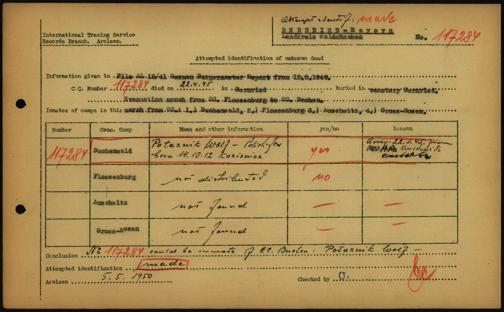 Attempted identif. made
International Tracing Service
DEHNRIED-Bayern
Records Branch. Arolsen.
Landkreis
No. 117284
Attempted identification of unknown dead
Information given in File AL 18/41 German Burgermaster Report from 15.2.1946.
C.C. Number 117284 died on 22.4.45 in buried in cemetery
Evacuation march from CC. Flossenburg to CC. Dachau.
Inmates of camps in this march from CC 1.) Buchenwald, 2.) Flossenburg 3.) Auschwitz, 4.) Gross-Rosen.
Number Conc. Camp Name and other information yes/no Reason
117284 Buchenwald Potaznik Wolf - Polish Jew born 19.10.12 Kozienice yes Arriv. 22.1.45 from Auschwitz
Flossenburg not distributed no
Auschwitz not found —
Gross-Rosen not found — —
Conclusion No 117284 could be inmate of CC. Buchen: Potaznik Wolf -
Attempted identification made
Arolsen 5.5.1950 Checked by